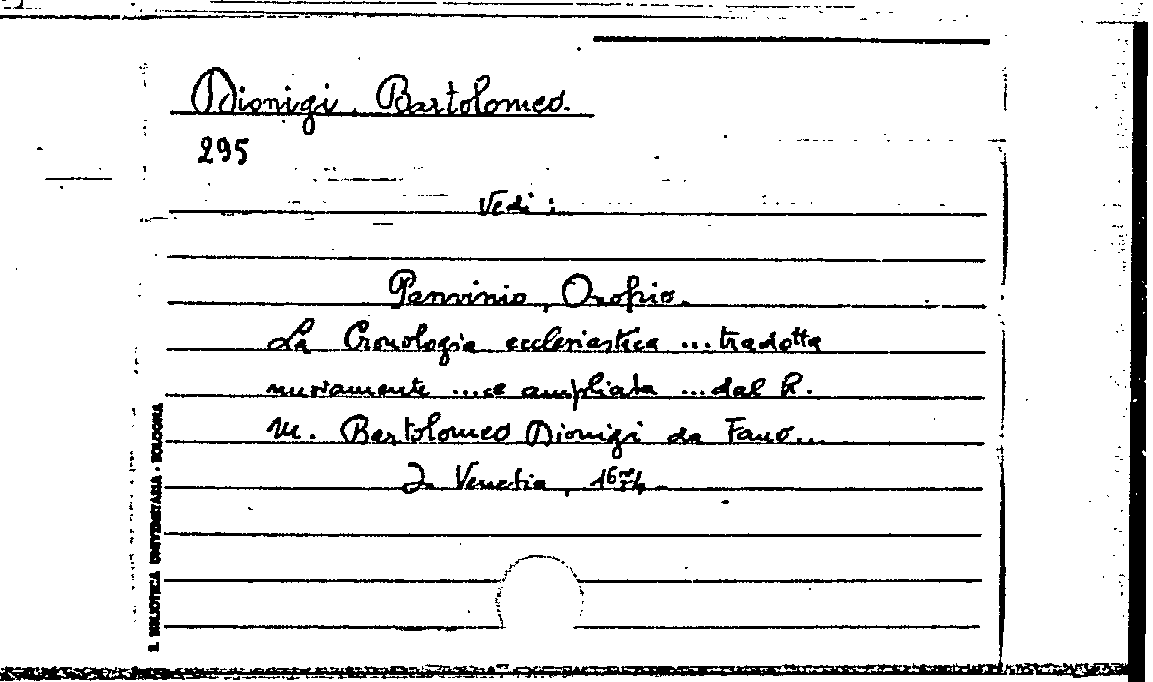 Dionigi, Bartolomeo.
295
Vedi:
Panvinio, Onofrio.
La Cronologia ecclesiastica ... tradotta
nuovamente ... e ampliata ... dal R.
M. Bartolomeo Dionigi da Fano...
In Venetia,
B. BIBLIOTECA UNIVERSITARIA - BOLOGNA